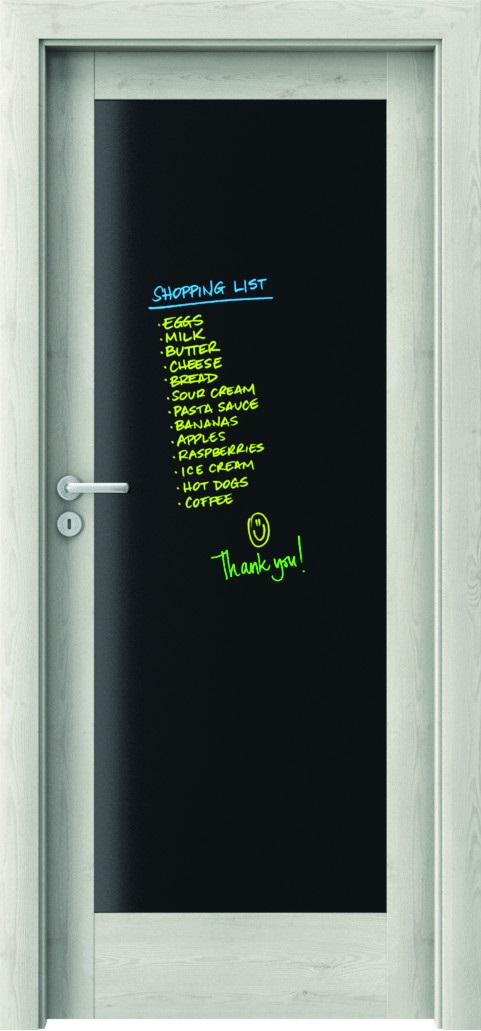 SHOPPING LIST
· EGGS
· MILK
· BUTTER
· CHEESE
· BREAD
· SOUR CREAM
· PASTA SAUCE
· BANANAS
· APPLES
· RASPBERRIES
· ICE CREAM
· HOT DOGS
· COFFEE
Thank you!